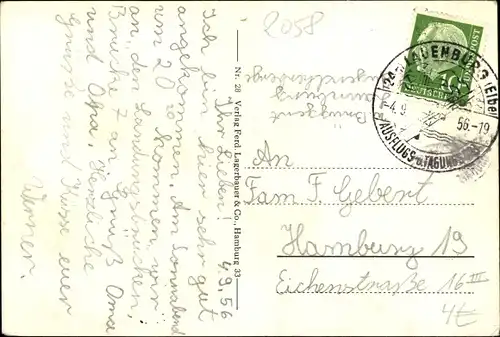 4.9.56
Ihr Lieben!
Ich bin hier sehr gut
angekommen. Am Sonnabend
um 20 kommen wir
an den Landungsbrücken,
Brücke 7 an. Grüß Oma
und Opa. Herzliche
Grüsse und Küsse euer
Werner.
Nr. 28 Verlag Ferd. Lagerbauer & Co., Hamburg 33
2058
DEUTSCHE BUNDESPOST
10
(24a) LAUENBURG (ELBE)
-4.9.56.-19
AUSFLUGS- u. TAGUNGS
An
Fam F. Gebert
Hamburg 19
Eichenstraße 16 III
4€